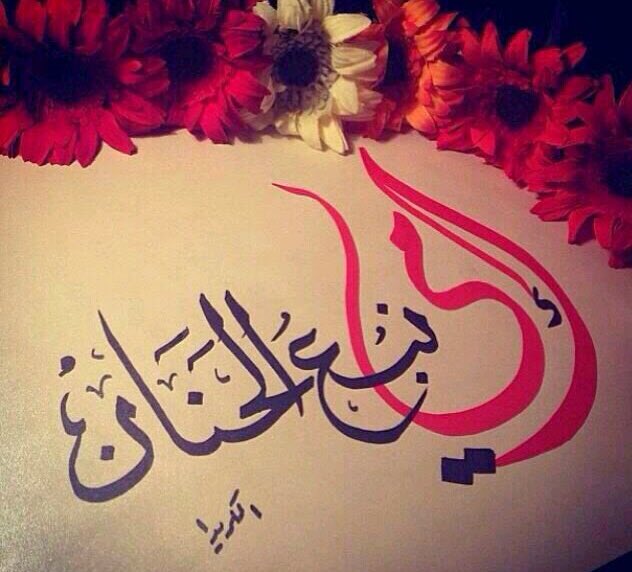 أمي نبع الحَنَانُ